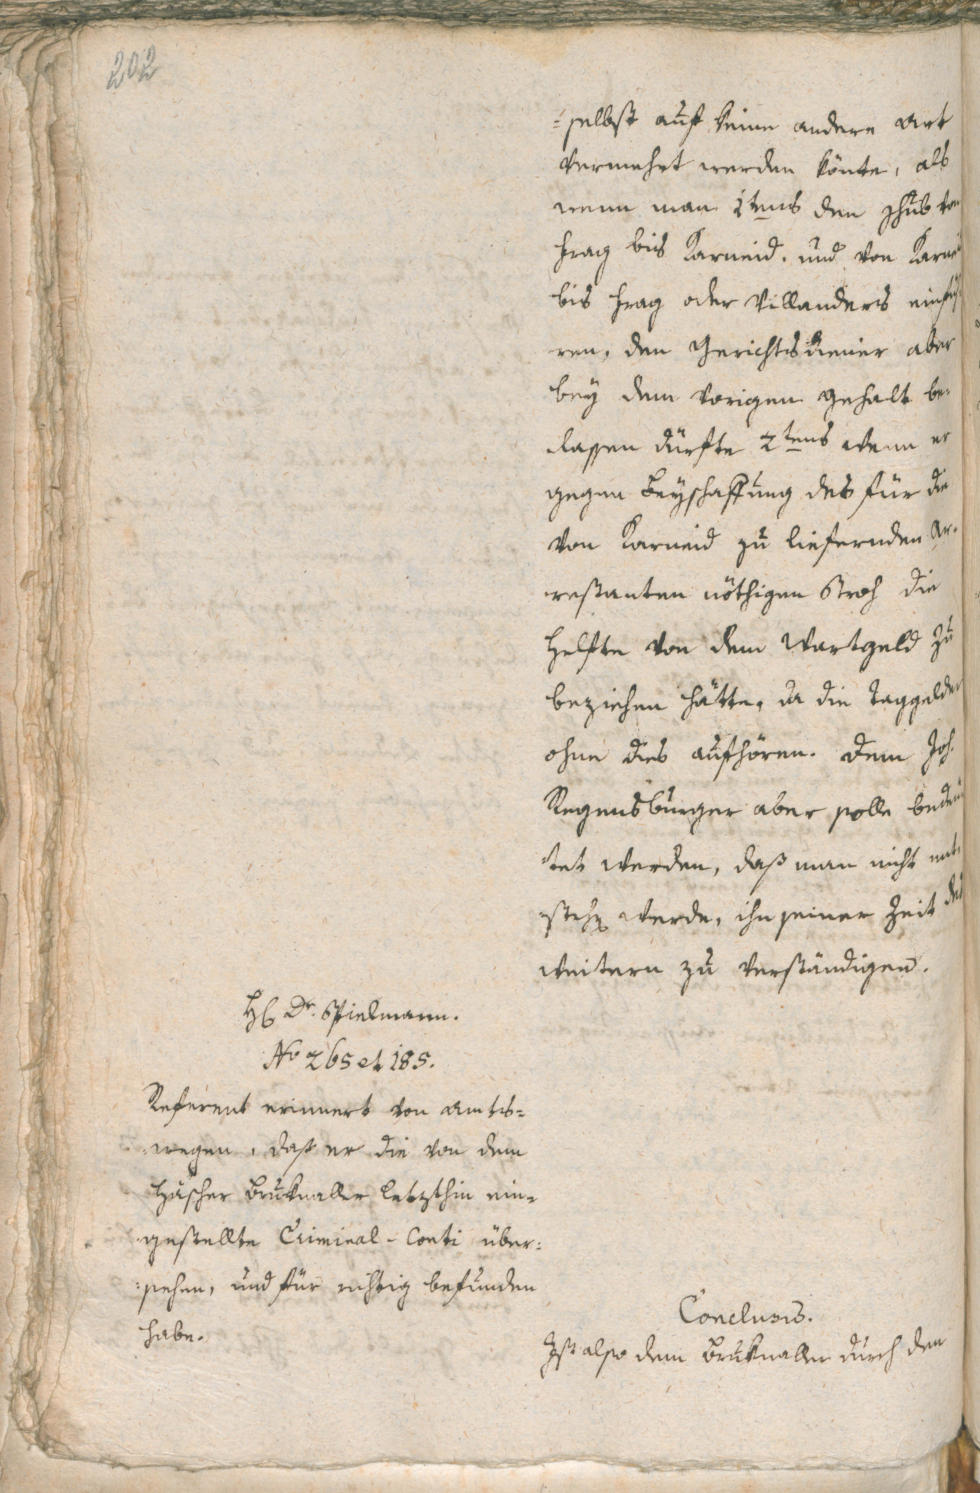 202
=selbst auf keine andere Art
vermehrt werden könte, als
wenn man 1tens den Schub von
bis Karneid. und von Karneid
bis oder Villanders einfüh
ren, den Gerichtsdiener aber
bey dem vorigen Gehalt be-
lassen dürfte 2tens wenn er
gegen Beyschaffung des für die
von Karneid zu liefernden Ar-
restanten nöthigen Stroh die
Helfte von dem Wartgeld zu
beziehen hätte, da die Taggelder
ohne dies aufhören. Dem Joh.
Regensburger aber solle bedeu
tet werden, daß man nicht ent
stehen werde, ihn seiner Zeit des
weitern zu verständigen.
H. Dr. Spielmann.
No 265 et 185.
Referent erinnert von Amts=
wegen, daß er die von dem
Häscher Bruknaller letzthin ein=
gestellte Criminal-Conti über=
sehen, und für richtig befunden
habe.
Conclusis.
Ist also dem Bruknaller durch den